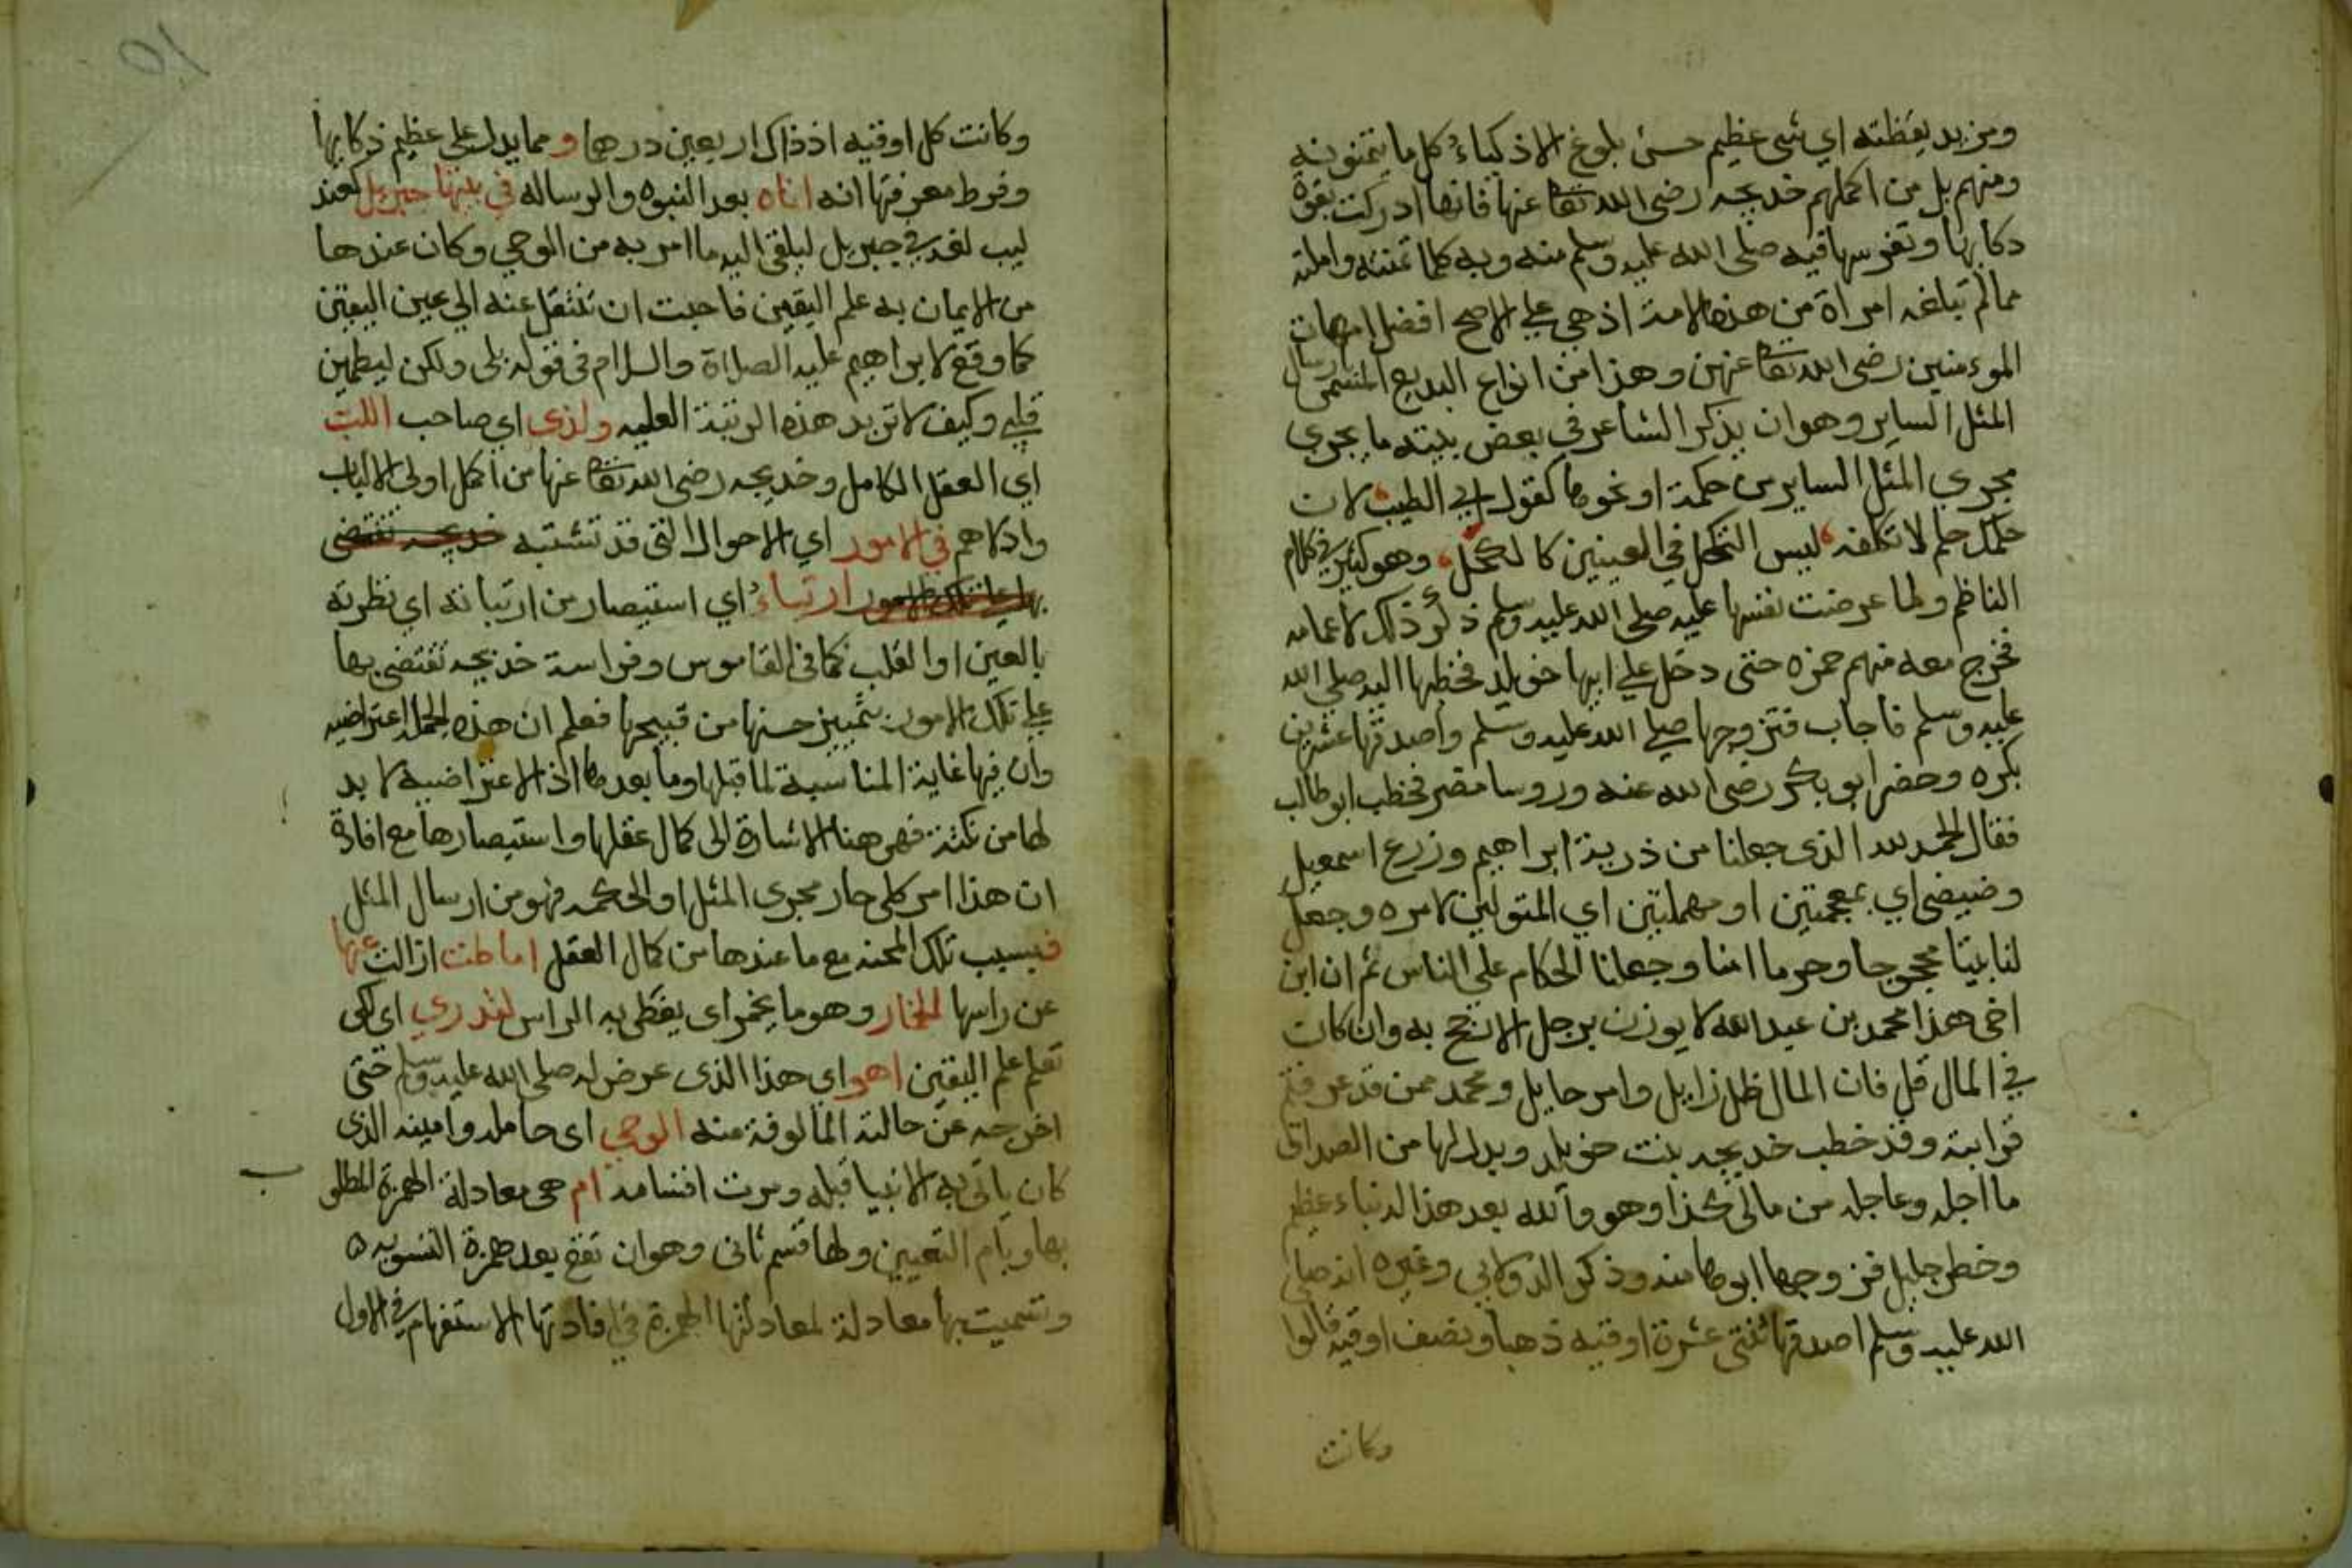 ومزيد يقظته اي شي عظيم حسن بلوغ الاذكياء كل ما يتمنونه
ومنهم بل من اكملهم خديجه رضى الله تعا عنها فانها ادركت بقوة
دكايها وتفرسها فيه صلى الله عليه وسلم منه وبه كلما تمنته واملته
مما لم تبلغه امراة من هذه الامة اذ هي على الاصح افضل امهات
الموءمنين رضى الله تعا عنهن وهذا من انواع البديع المسمى ارسال
المثل الساير وهو ان يذكر الشاعر في بعض بيته ما يجرى
مجرى المثل الساير من حكمة او نحوها كقول ابي الطيب لان
حلمك حلم لا تكلفه ليس التكحل في العينين كا لكحل وهو كثير في كلام
الناظم ولما عرضت نفسها عليه صلى الله عليه وسلم ذكر ذلك لاعمامه
فخرج معه منهم حمزه حتى دخل على ابيها خويلد فخطبها اليه صلى الله
عليه وسلم فاجاب فتزوجها صلى الله عليه وسلم واصدقها عشرين
بكره وحضر ابو بكر رضى الله عنه وروسا مضر فخطب ابو طالب
فقال الحمد لله الذى جعلنا من ذرية ابراهيم وزرع اسمعيل
وضيضى اي بمعجمتين او مهملتين اي المتولين لامره وجعل
لنا بيتا محجوجا وحرما امنا وجعلنا الحكام على الناس ثم ان ابن
اخى هذا محمد بن عبد الله لا يوزن برجل الا رجح به وان كان
في المال قل فان المال ظل زايل وامر حايل ومحمد ممن قد عرفتم
قرابته وقد خطب خديجه بنت خويلد وبذل لها من الصداق
ما اجله وعاجله من مالى كذا وهو والله بعد هذا له نباء عظيم
وخطر جليل فزوجها ابوها منه وذكر الدولابي وغيره انه صلى
الله عليه وسلم اصدقها ثنتى عشرة اوقيه ذهبا ونصف اوقيه قالوا
وكانت
وكانت كل اوقيه اذ ذاك اربعين درهما ومما يدل على عظيم ذكايها
وفرط معرفتها انه اتاه بعد النبوه والرساله في بيتها جبريل
ليلقى اليه ما امر به من الوحي وكان عندها
من الايمان به علم اليقين فاحبت ان تنتقل عنه الى عين اليقين
كما وقع لابراهيم عليه الصلاة والسلام فى قوله بلى ولكن ليطمين
قلبي وكيف لا تريد هذه الرتبة العليه ولذى اي صاحب اللب
اي العقل الكامل وخديجه رضى الله تعا عنها من اكمل اولى الالباب
واذكاهم في الامور اي الاحوال التى قد تشتبه خديجه تقتضى
بها على تلك الامور ارتياء اي استبصار من ارتيا ته اي نظرته
بالعين او القلب كما فى القاموس وفراسة خديجه تقتضى بها
على تلك الامور بتمييز حسنها من قبيحها فعلم ان هذه الجمله اعتراضيه
وان فيها غاية المناسبة لما قبلها وما بعدها اذ الاعتراضيه لا بد
لها من نكتة فهى هنا الاشارة الى كمال عقلها واستبصارها مع افادة
ان هذا امر كلى جار مجرى المثل او الحكمه فهو من ارسال المثل
فبسبب تلك المحنه مع ما عندها من كمال العقل اماطت ازالت عنها
عن راسها الخمار وهو ما يخمر اى يغطى به الراس لتدري اي كى
تعلم علم اليقين اهو اي هذا الذى عرض له صلى الله عليه وسلم حتى
اخرجه عن حالته المالوفة منه الوحي اى حامله وامينه الذى
كان ياتى به الانبيا قبله ومرت اقسامه ام هى معادلة الهمزة المطلو ب
بها وبام التعيين ولها قسم ثانى وهو ان تقع بعد همزة التسويه
وتسميت بها معادلة لمعادلتها الهمزة في افادتها الاستفهام في الاول